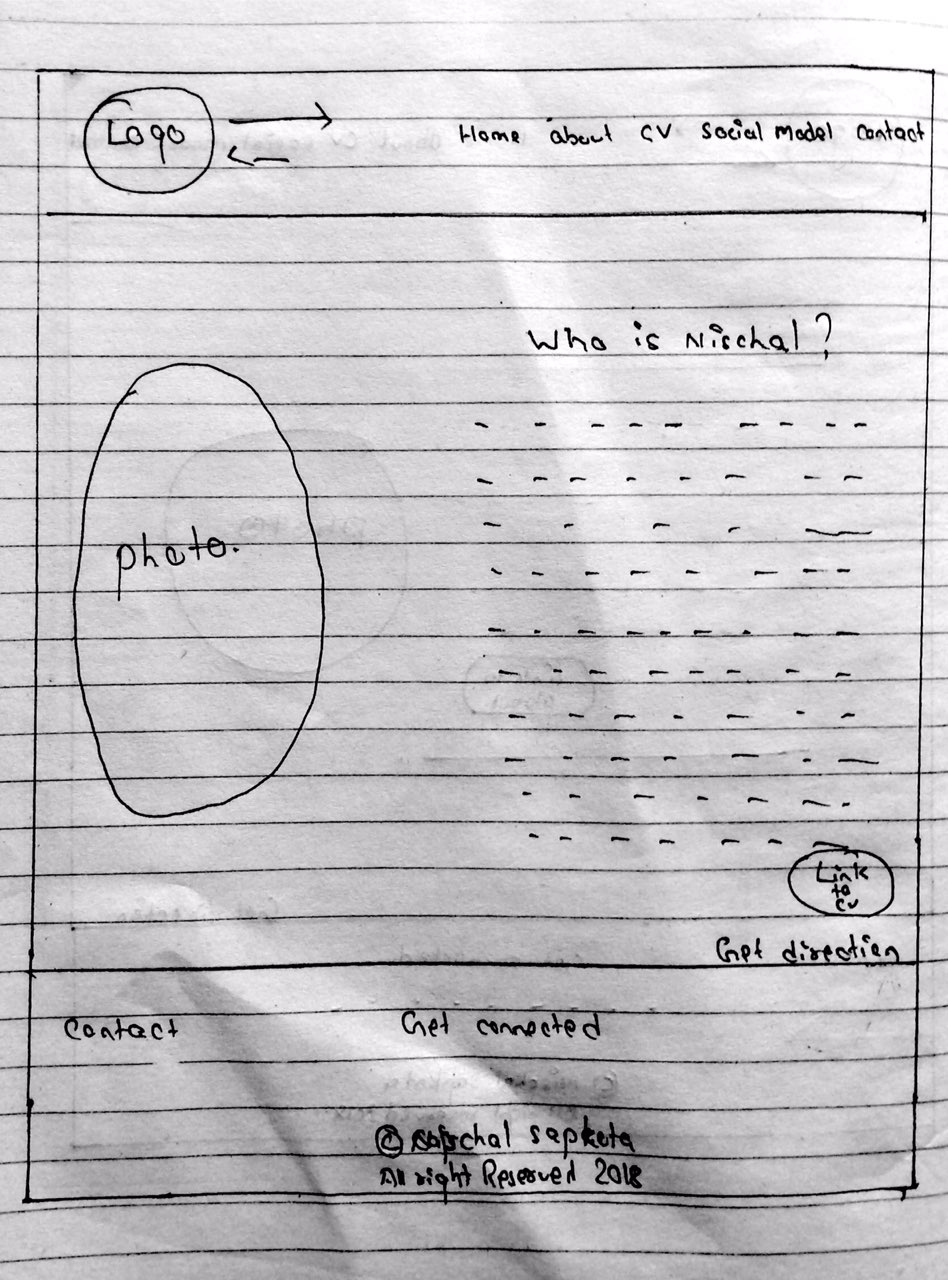 Logo
Home about CV Social Model Contact
Who is Nischal?
photo.
Link
to
CV
Get direction
Contact
Get connected
© sapkota
All right Reserved 2018